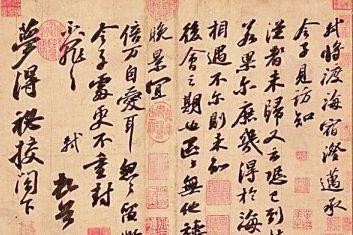 軾將渡海宿澄邁承
令子見訪知
從者未歸又云恐已到桂
若果尔庶幾得於海
相遇不尔則未知
後會之期也區區無他禱
晚景宜
倍万自愛耳匆匆留此紙
令子處更不重封
不罪〻
軾 頓首
夢得秘校閣下